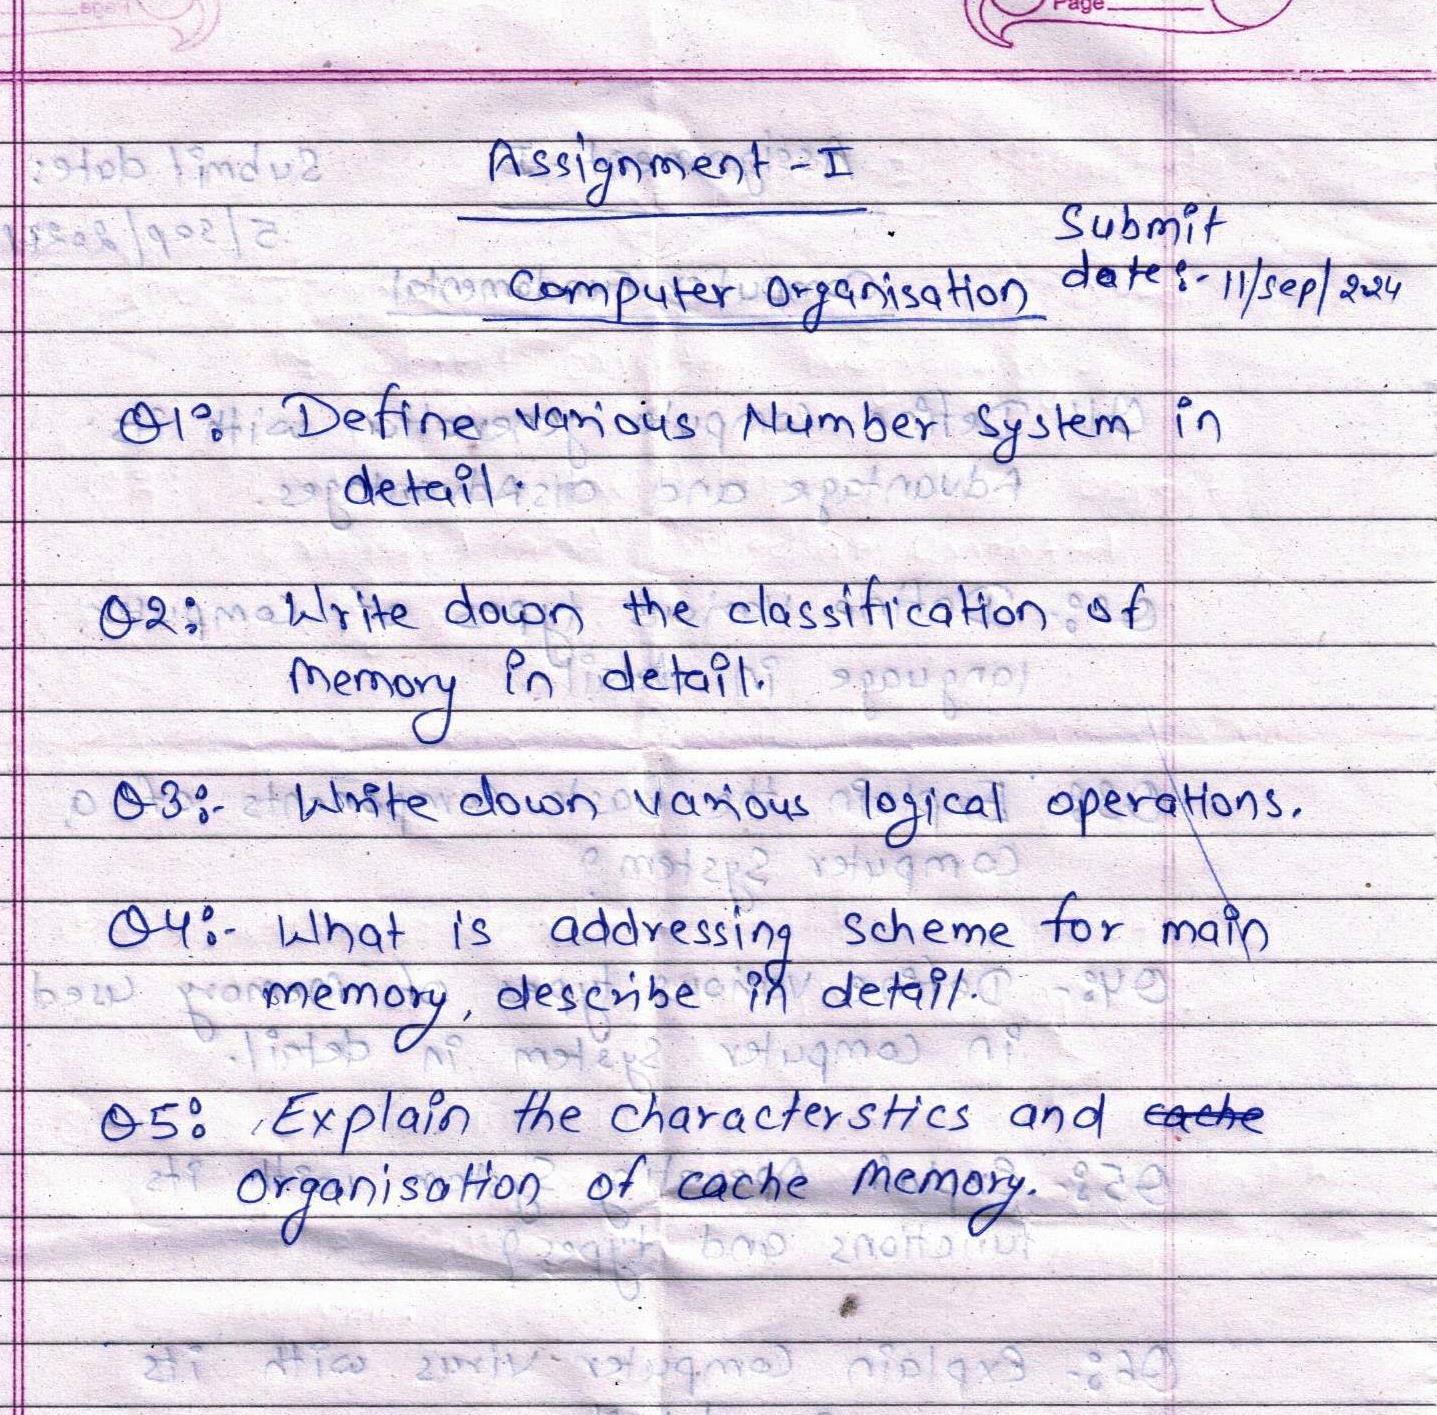 Page
Assignment - I
Submit
date :- 11/sep/2024
Computer Organisation
Q1: Define various Number System in
detail.
Q2: Write down the classification of
memory in detail.
Q3:- Write down various logical operations.
Q4:- What is addressing scheme for main
memory, describe in detail.
Q5: Explain the characterstics and cache
Organisation of cache memory.